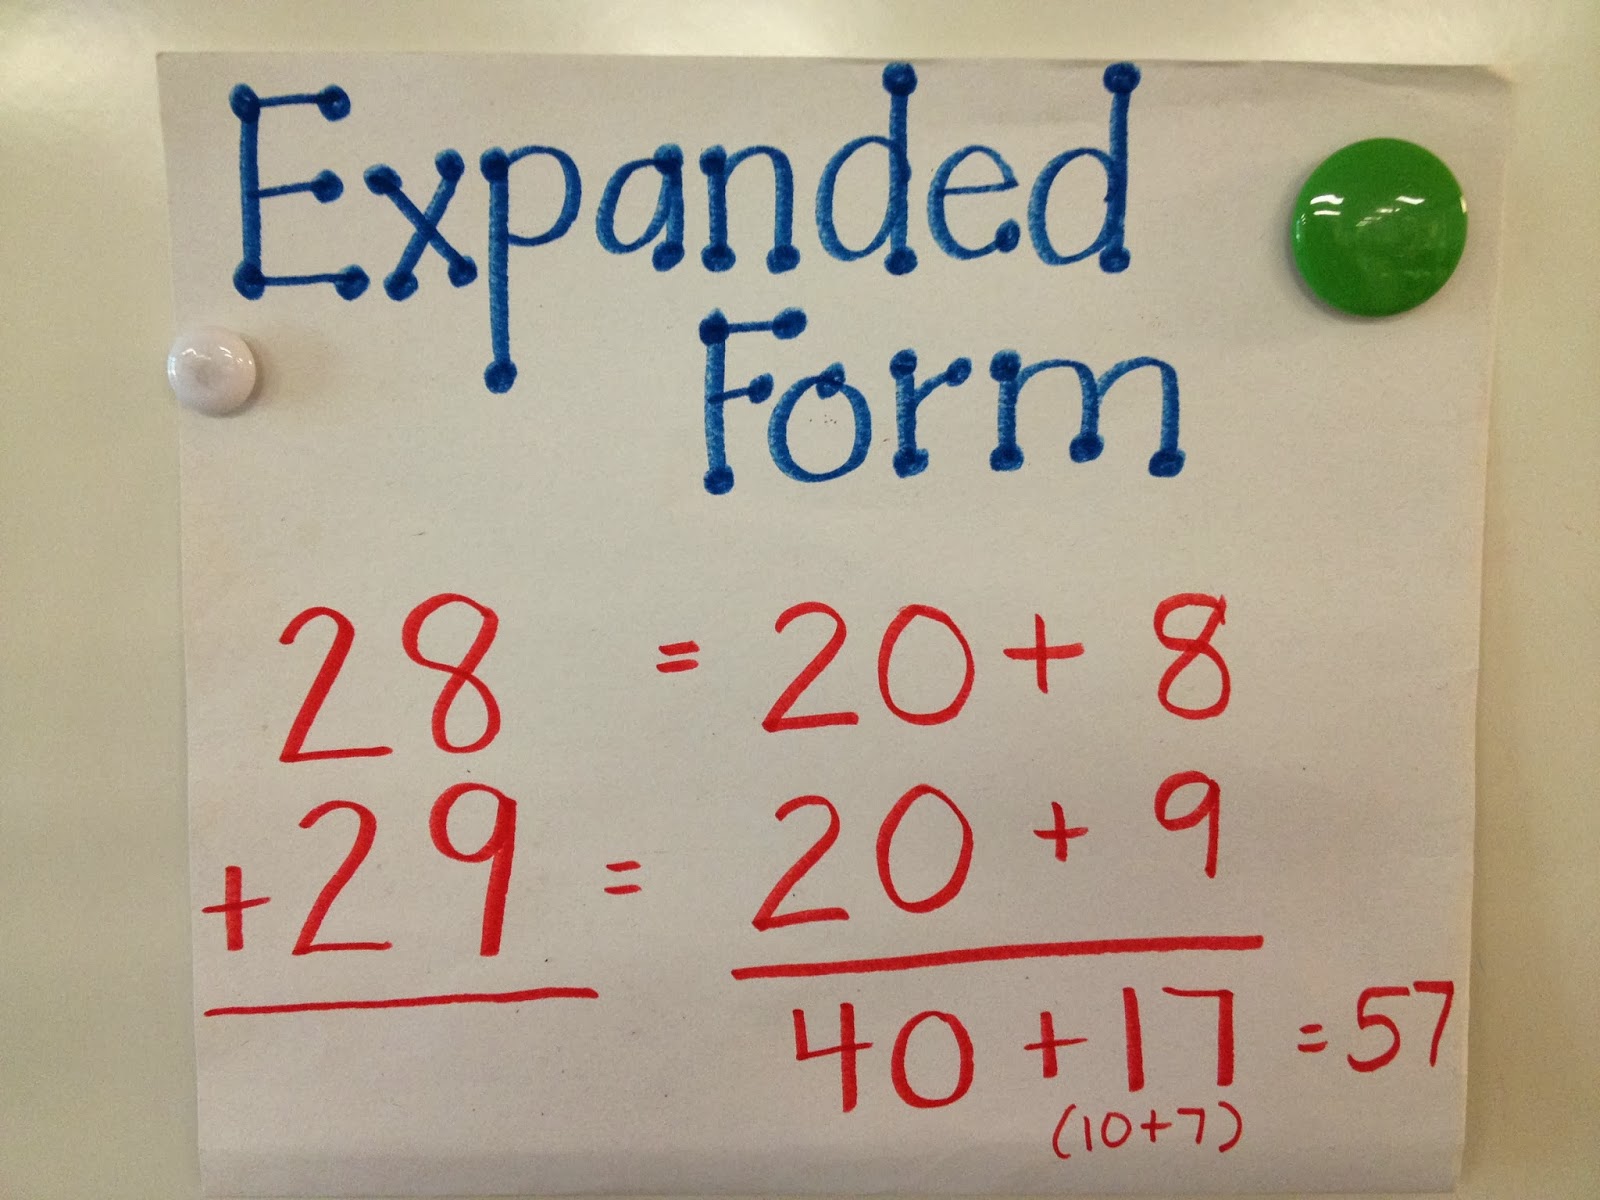 Expanded
Form
28 = 20 + 8
+ 29 = 20 + 9
40 + 17 = 57
(10+7)